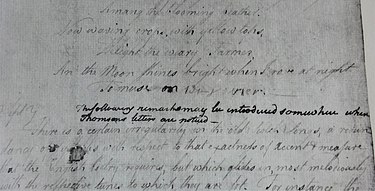 Amang the blooming heather.
Now waving crops, with yellow tops,
Delight the wary Farmer,
An' the Moon shines bright when I rove at night,
To muse on
The following remarks may be introduced somewhere when
Thomsons letters are noticed —
There is a certain irregularity in the old Scotch Songs, a redundancy
of syllables with respect to that exactness of accent & measure
that the English Poetry requires, but which glides in, most meliodiously
with the respective tunes to which they are set. For instance, the